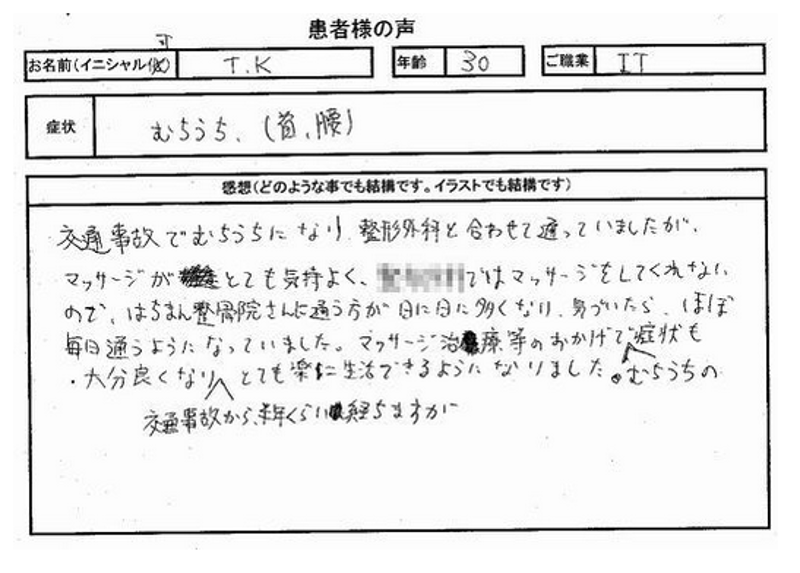 患者様の声
お名前(イニシャル可) T.K 年齢 30 ご職業 IT
症状 むちうち、(首、腰)
感想(どのような事でも結構です。イラストでも結構です)
交通事故でむちうちになり、整形外科と合わせて通っていましたが、
マッサージがとても気持よく、ではマッサージをしてくれない
ので、はちまん整骨院さんに通う方が日に日に多くなり、気づいたら、ほぼ
毎日通うようになっていました。マッサージ治療等のおかげで症状も
大分良くなり とても楽に生活できるようになりました。むちうちの
交通事故から、半年くらい経ちますが